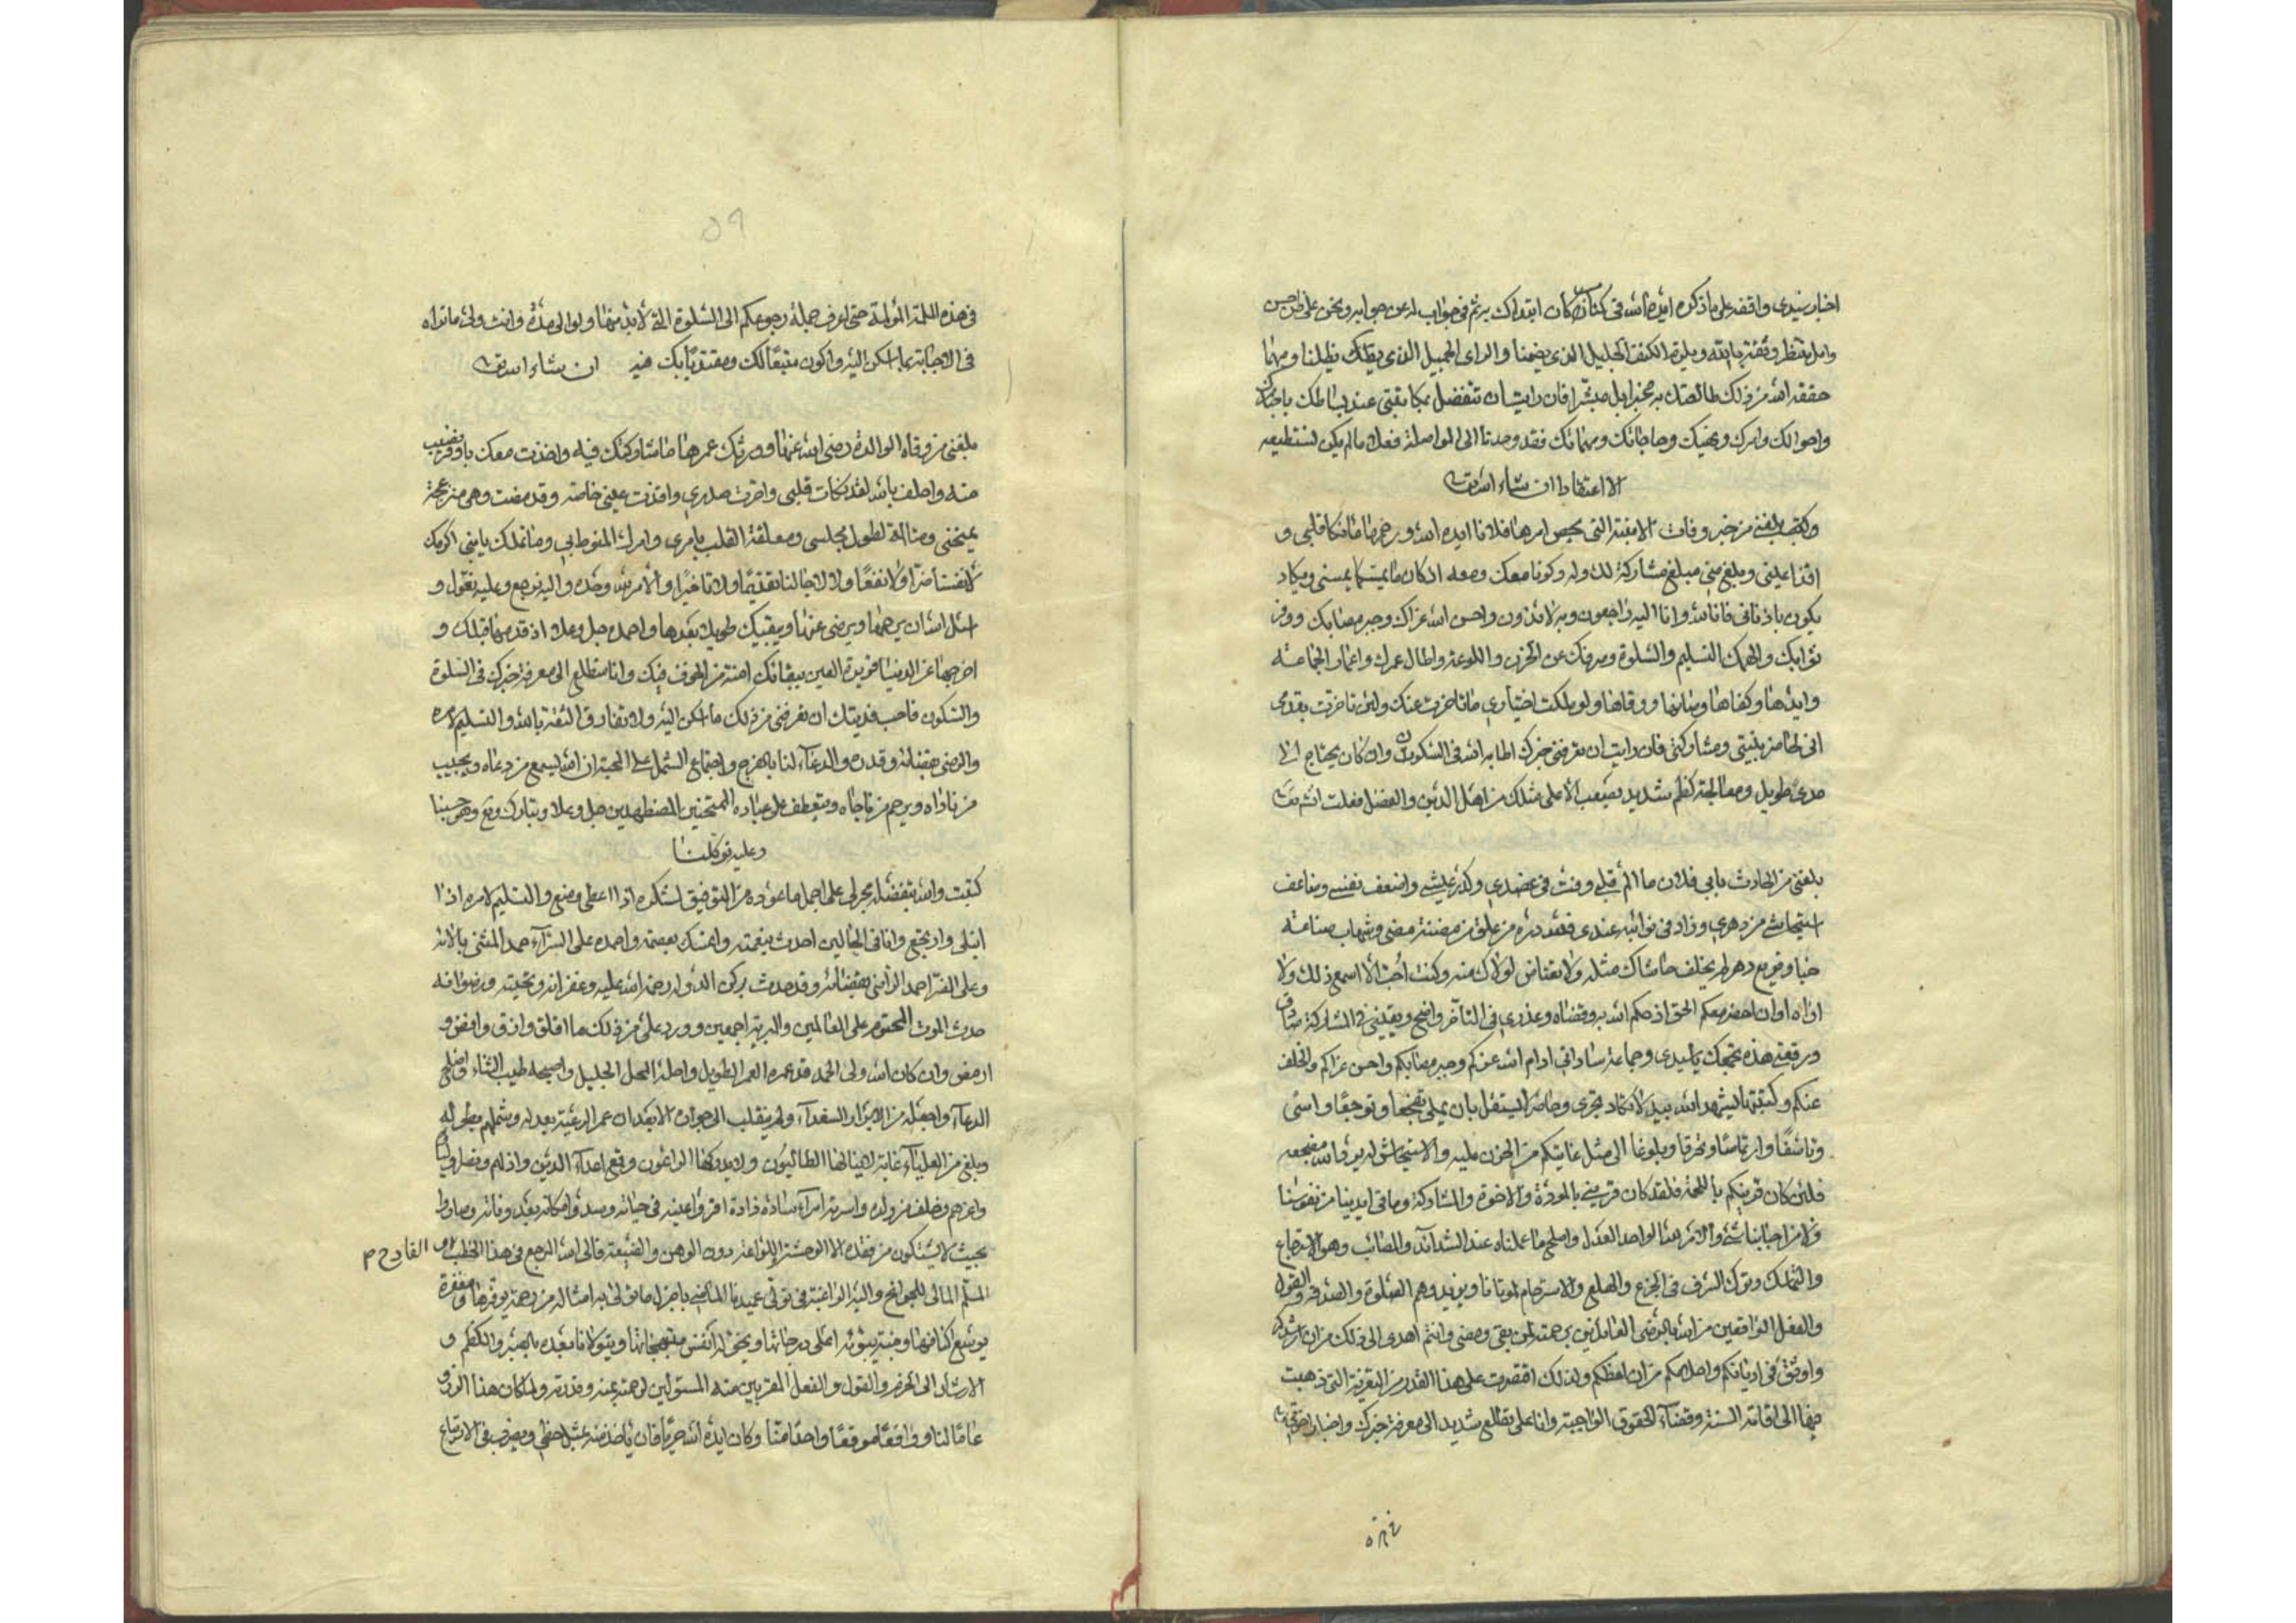 اخبار سيدى واقفه على ما ذكره ايده الله فى كتابى كان ابتداك به ثم فى جواب له عن جوابه ونحن على ظن حسن
وامل منتظر وثقة بالله وبلوة الكنف الجليل الذى يضمنا والراى الجميل الذى يظلك يظلنا ومهما
حققه الله من ذلك طالعتك به مخبرا بل مبشرا فان رايت ان تتفضل بمكاتبتى عند نشاطك باخبارك
واحوالك وامرك ونهيك وحاجاتك ومهماتك فقد وجدنا الى المواصلة فعلا مالم يكن نستطيعه
الا اعتقادا ان شاء الله تعالى
وكتب بلغنى من خبر وفات الابنة التى يخص امرها فلانا ايده الله ورحمها ما نكا قلبى و
اقذا عينى وبلغ منى مبلغ مشاركة لك وله وكونا معك ومعه اذ كان ما يمسكما يمسنى ويكاد
يكون باذن الله فانا لله وانا اليه راجعون وبه لائذون واحسن الله عزاك وجبر مصابك ووفر
ثوابك والهمك التسليم والسلوة وصرفك عن الحزن واللوعة واطال عمرك واعمار الجماعة
وايدها وكفاها وصانها ووقاها ولو ملكت اختيارى ما تاخرت عنك ولئن تاخرت بقدمى
انى لحاضر بنيتى ومشاركتى فان رايت ان تعرفنى خبرك اطابه الله فى السكون وان كان يحتاج الى
مدى طويل ومعالجة كظم شديد يصعب الا على مثلك من اهل الدين والفضل فعلت ان شاء الله تعالى
بلغنى من الحادث بابى فلان ما الم قلبى وفت فى عضدى وكدر عيشى واضعف نفسى وضاعف
استيحاشى من دهرى وزاد فى نوائبه عندى فلله دره من علق مضنة مضى وشهاب صناعة
خبا وقريع دهر لم يخلف حاشاك مثله ولا يعتاض لولاك منه وكنت احب الا اسمع ذلك ولا
اراه اوان احضر معكم الحق اذ حكم الله به وقضاه وعذرى فى التاخر واضح ويقينى فى المشاركة صادق
ورقعتى هذه تجمعك يا سيدى وجماعة ساداتى ادام الله عزكم وجبر مصابكم واحسن عزاكم والخلف
عنكم وكتبتها ليشهد الله بيد لا تكاد تجرى وخاطر لا يستقل بان يملى تفجعا وتوجعا واسى
وتاسفا وارتماضا وتحرقا وبلوغا الى مثل غايتكم من الحزن عليه والاستيحاش له برد الله مضجعه
فلئن كان قريبكم باللحمة فلقد كان قريبى بالمودة والاخوة والمشاركة وما فى ايدينا من نفوسنا
ولا من احبابنا شئ والامر لله الواحد العدل واصلح ما عملناه عند الشدائد والمصائب وهو الاسترجاع
والتملك وترك السرف فى الجزع والهلع والاسترحام لموتانا ونزيدهم الصلوة والصدقة والقول
والفعل الواقعين من الله بالرضى العائدين برحمته لمن بقى ومضى وانتم اهدى الى ذلك من ان ارشدكم
واوثق فى اديانكم واحلامكم من ان اعظكم ولذلك اقتصرت على هذا القدر من التعزية التى ذهبت
فيها الى اقامة السنة وقضاء الحقوق الواجبة وانا على تطلع شديد الى معرفة خبرك واخبار اخوتى
فى هذه الملمة المولمة حتى اعرف جملة رجوعكم الى السلوة التى لابد منها ولو الى مدة وانت ولى ما تراه
فى الاجابة بما اسكن اليه واكون متبعا لك ومقتديا بك فيه ان شاء الله تعالى
بلغنى من وفاة الوالدة رضى الله عنها وورثك عمرها ما شاركتك فيه واخذت معك باوفر نصيب
منه واحلف بالله لقد نكات قلبى واحرت صدرى واقذت عينى خاصة وقد مضت وهى منزعجة
بمحنتى ومتالمة لطول مجلسى ومعلقة القلب بامرى وامرك المنوط بى وما نملك يا بنى اكرمك
لانفسنا ضرا ولا نفعا ولا لاجالنا تقديما ولا تاخيرا والامر لله وحده واليه نرجع وعليه نعول و
اسئل الله ان يرحمها ويرضى عنها ويبقيك طويلا بعدها واحمده جل وعلا اذ قدمها قبلك و
اخرجها عن الدنيا قريرة العين ببقائك امنة من الخوف فيك وانا متطلع الى معرفة خبرك فى السلوة
والسكون فاحب فديتك ان تعرفنى من ذلك ما اسكن اليه ولا تفارق الثقة بالله والتسليم لامره
والرضى بقضائه وقدره والدعاء لنا بالفرج واجتماع الشمل على المحبة ان الله ليسمع من دعاه ويجيب
من ناداه ويرحم من ناجاه ويتعطف على عباده الممتحنين المضطهدين جل وعلا وتبارك وتع وهو حسبنا
وعليه توكلنا
كتبت والله بتفضله مجر لى على اجمل ما عوده من التوفيق لشكره اذا اعطى ومنح والتسليم لامره اذا
ابتلى وارتجع وانا فى الحالين احدث بنعمته وامسك بعصمته واحمده على السراء حمد المثنى بالائه
وعلى الضرا حمد الراضى بقضائه وقد حدث بركن الدولة رحمة الله عليه وغفرانه وتحيته ورضوانه
حدث الموت المحتوم على العالمين والبرية اجمعين وورد على من ذلك ما اقلق وارق وامض و
ارمض وان كان الله ولى الحمد قد عمره العمر الطويل واحله المحل الجليل واصحبه طيب الثناء وصالح
الدعاء وجعله من الابرار السعداء ولم ينقلب الى جواره الا بعد ان عم الرعية بعدله وشملهم بطوله
وبلغ من العلياء غاية لا ينالها الطالبون ولا يدركها الراغبون وقمع اعداء الدين واذلهم
واعزهم وخلف من ولده واسرته امراء سادة ذادة اقروا عينه فى حياته وسدوا مكانه بعد وفاته وصاروا
بحيث لا يشتكون من فقده الا الوحشة واللوعة دون الوهن والضيعة فالى الله المرجع فى هذا الخطب القادح م
الملم المالى للجوانح واليه الرغبة فى تولى عميدنا الماضى باجزل ما تولى به امثاله من رحمة يوفرها ومغفرة
يوسع اكنافها وجنة يبوئه اعلى درجاتها ويخوله انفس مبتهجاتها ويتولانا بعده بالصبر والكظم و
الارشاد الى الحزم والقول والفعل المقربين منه المستولين لرحمته بمنه وقدرته ولما كان هذا الرزء
عاما لنا وواقعا موقعا واحدا منا وكان ايده الله حريا فان ياخذ منه بمثل حظى ويضرب فى الارتياع